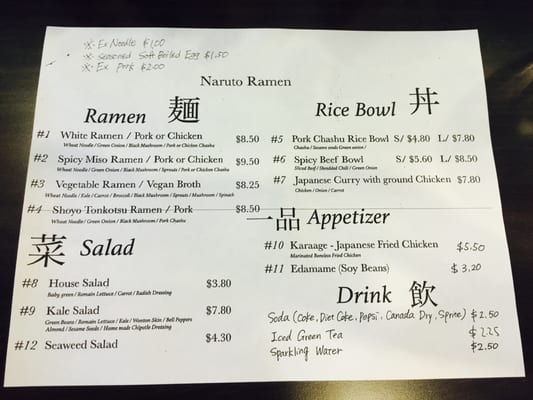 ※ Ex Noodle $1.00
※ Seasoned Soft Boiled Egg $1.50
※ Ex Pork $2.00
Naruto Ramen
Ramen 麺
#1 White Ramen / Pork or Chicken $8.50
Wheat Noodle / Green Onion / Black Mushroom / Pork or Chicken Chashu
#2 Spicy Miso Ramen / Pork or Chicken $9.50
Wheat Noodle / Green Onion / Black Mushroom / Sprouts / Pork or Chicken Chashu
#3 Vegetable Ramen / Vegan Broth $8.25
Wheat Noodle / Kale / Carrot / Broccoli / Black Mushroom / Sprouts / Mushroom / Spinach
#4 Shoyo Tonkotsu Ramen / Pork $8.50
Wheat Noodle / Green Onion / Black Mushroom / Sprouts / Pork Chashu
菜 Salad
#8 House Salad $3.80
Baby green / Romain Lettuce / Carrot / Radish Dressing
#9 Kale Salad $7.80
Green Beans / Romain Lettuce / Kale / Wonton Skin / Bell Peppers
Almond / Sesame Seeds / Home made Chipotle Dressing
#12 Seaweed Salad $4.30
Rice Bowl 丼
#5 Pork Chashu Rice Bowl S/ $4.80 L/ $7.80
Chashu / Sesame seeds Green onion /
#6 Spicy Beef Bowl S/ $5.60 L/ $8.50
Sliced Beef / Shredded Chili / Green Onion
#7 Japanese Curry with ground Chicken $7.80
Chicken / Onion / Carrot
一品 Appetizer
#10 Karaage - Japanese Fried Chicken $5.50
Marinated Boneless Fried Chicken
#11 Edamame (Soy Beans) $3.20
Drink 飲
Soda (Coke, Diet Coke, Popsi, Canada Dry, Sprite) $2.50
Iced Green Tea $2.25
Sparkling Water $2.50